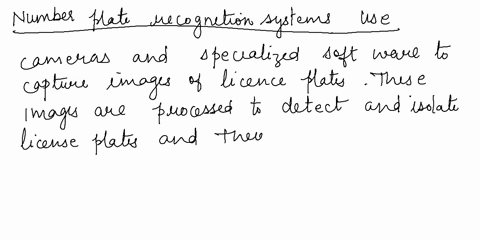 Number plate recognetion systems use
cameras and specialized soft ware to
capture images of licence plates . These
images are processed to detect and isolate
license plates and Thei